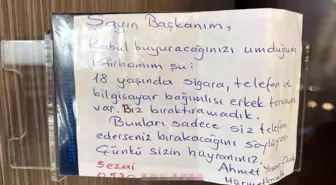 Sayın Başkanım,
Kabul buyuracağınızı umduğum
istirhamım şu:
18 yaşında sigara, telefon ve
bilgisayar bağımlısı erkek torunum
var. Biz bıraktıramadık.
Bunları sadece siz telefon
ederseniz bırakacağını söylüyor.
Çünkü sizin hayranınız.
Sezai
Ahmet